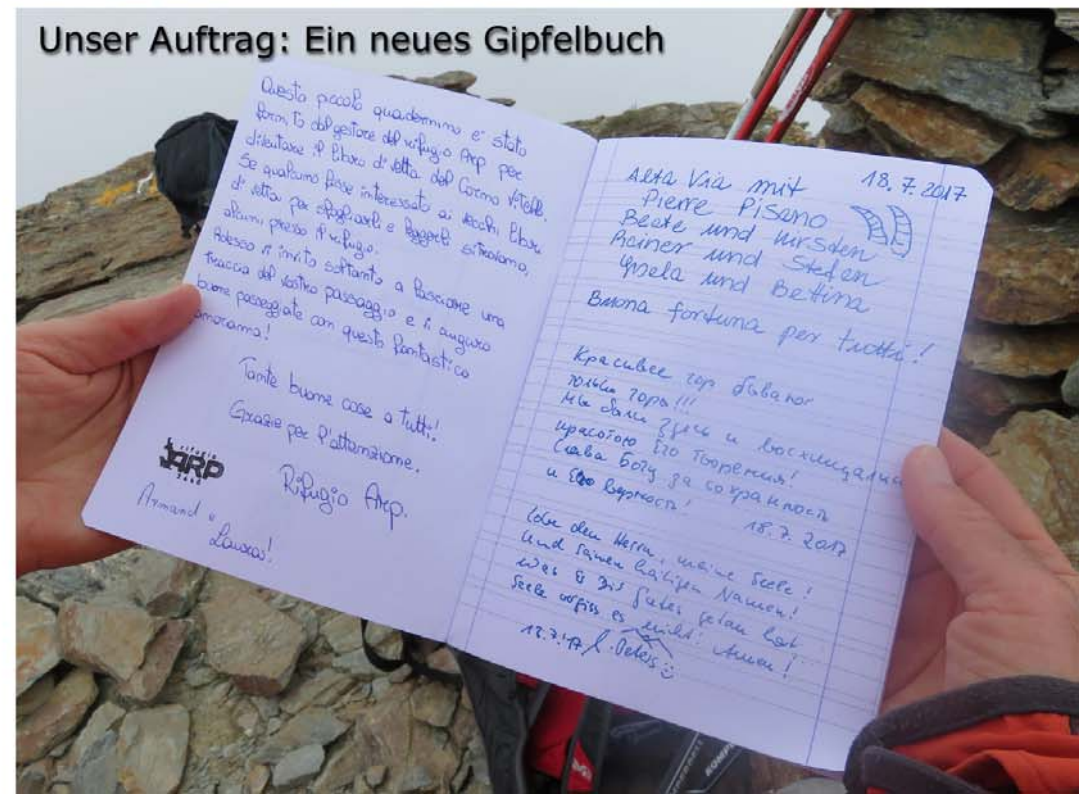 Unser Auftrag: Ein neues Gipfelbuch
Questo piccolo quadernino e' stato
fornito dal gestore del rifugio Arp per
diventare il libro di vetta del Corno Vitello.
Se qualcuno fosse interessato ai vecchi libri
di vetta per sfogliarli e leggerli si trovano,
alcuni presso il rifugio.
Adesso vi invito soltanto a lasciare una
traccia del vostro passaggio e vi auguro
buone passeggiate con questo fantastico
panorama!
Tante buone cose a tutti!
Grazie per l'attenzione.
Rifugio Arp.
rifugio
ARP
Armand e
Laura!
18.7.2017
Alta Via mit
Pierre Pisano
Beate und Kirsten
Rainer und Stefan
Gisela und Bettina
Buona fortuna per tutti!
Красивее гор
только горы!!!
Мы были здесь и восхищались
красотою Его творения!
Слава Богу за сохранность
и Его верность!
18.7.2017
Lobe den Herrn, meine Seele!
Und seinen heiligen Namen!
Was er dir Gutes getan hat
Seele vergiss es nicht! Amen!
18.7.17 Peters